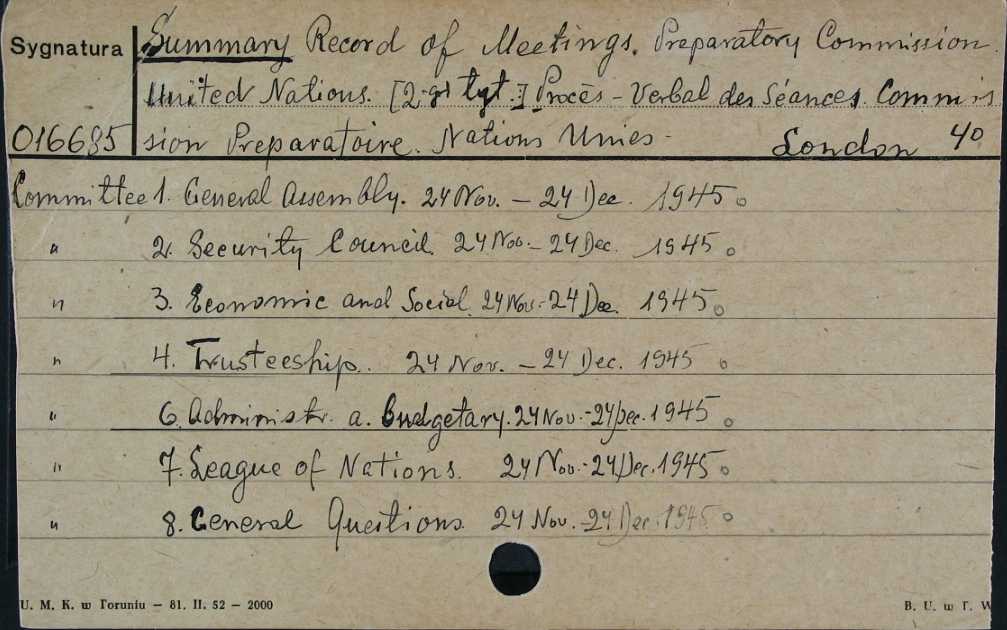 Sygnatura Summary Record of Meetings. Preparatory Commission.
United Nations. [2-gi tyt.:] Procès-Verbal des Séances. Commis
016685 sion Preparatoire. Nations Unies- London 40
Committee 1. General Assembly. 24 Nov. - 24 Dec. 1945
" 2. Security Council. 24 Nov. - 24 Dec. 1945
" 3. Economic and Social. 24 Nov. - 24 Dec. 1945
" 4. Trusteeship. 24 Nov. - 24 Dec. 1945
" 6. Administr. a. Budgetary. 24 Nov. - 24 Dec. 1945
" 7. League of Nations. 24 Nov. - 24 Dec. 1945
" 8. General Questions. 24 Nov. - 24 Dec. 1945
U. M. K. w Toruniu — 81. II. 52 — 2000 B. U. w T. W